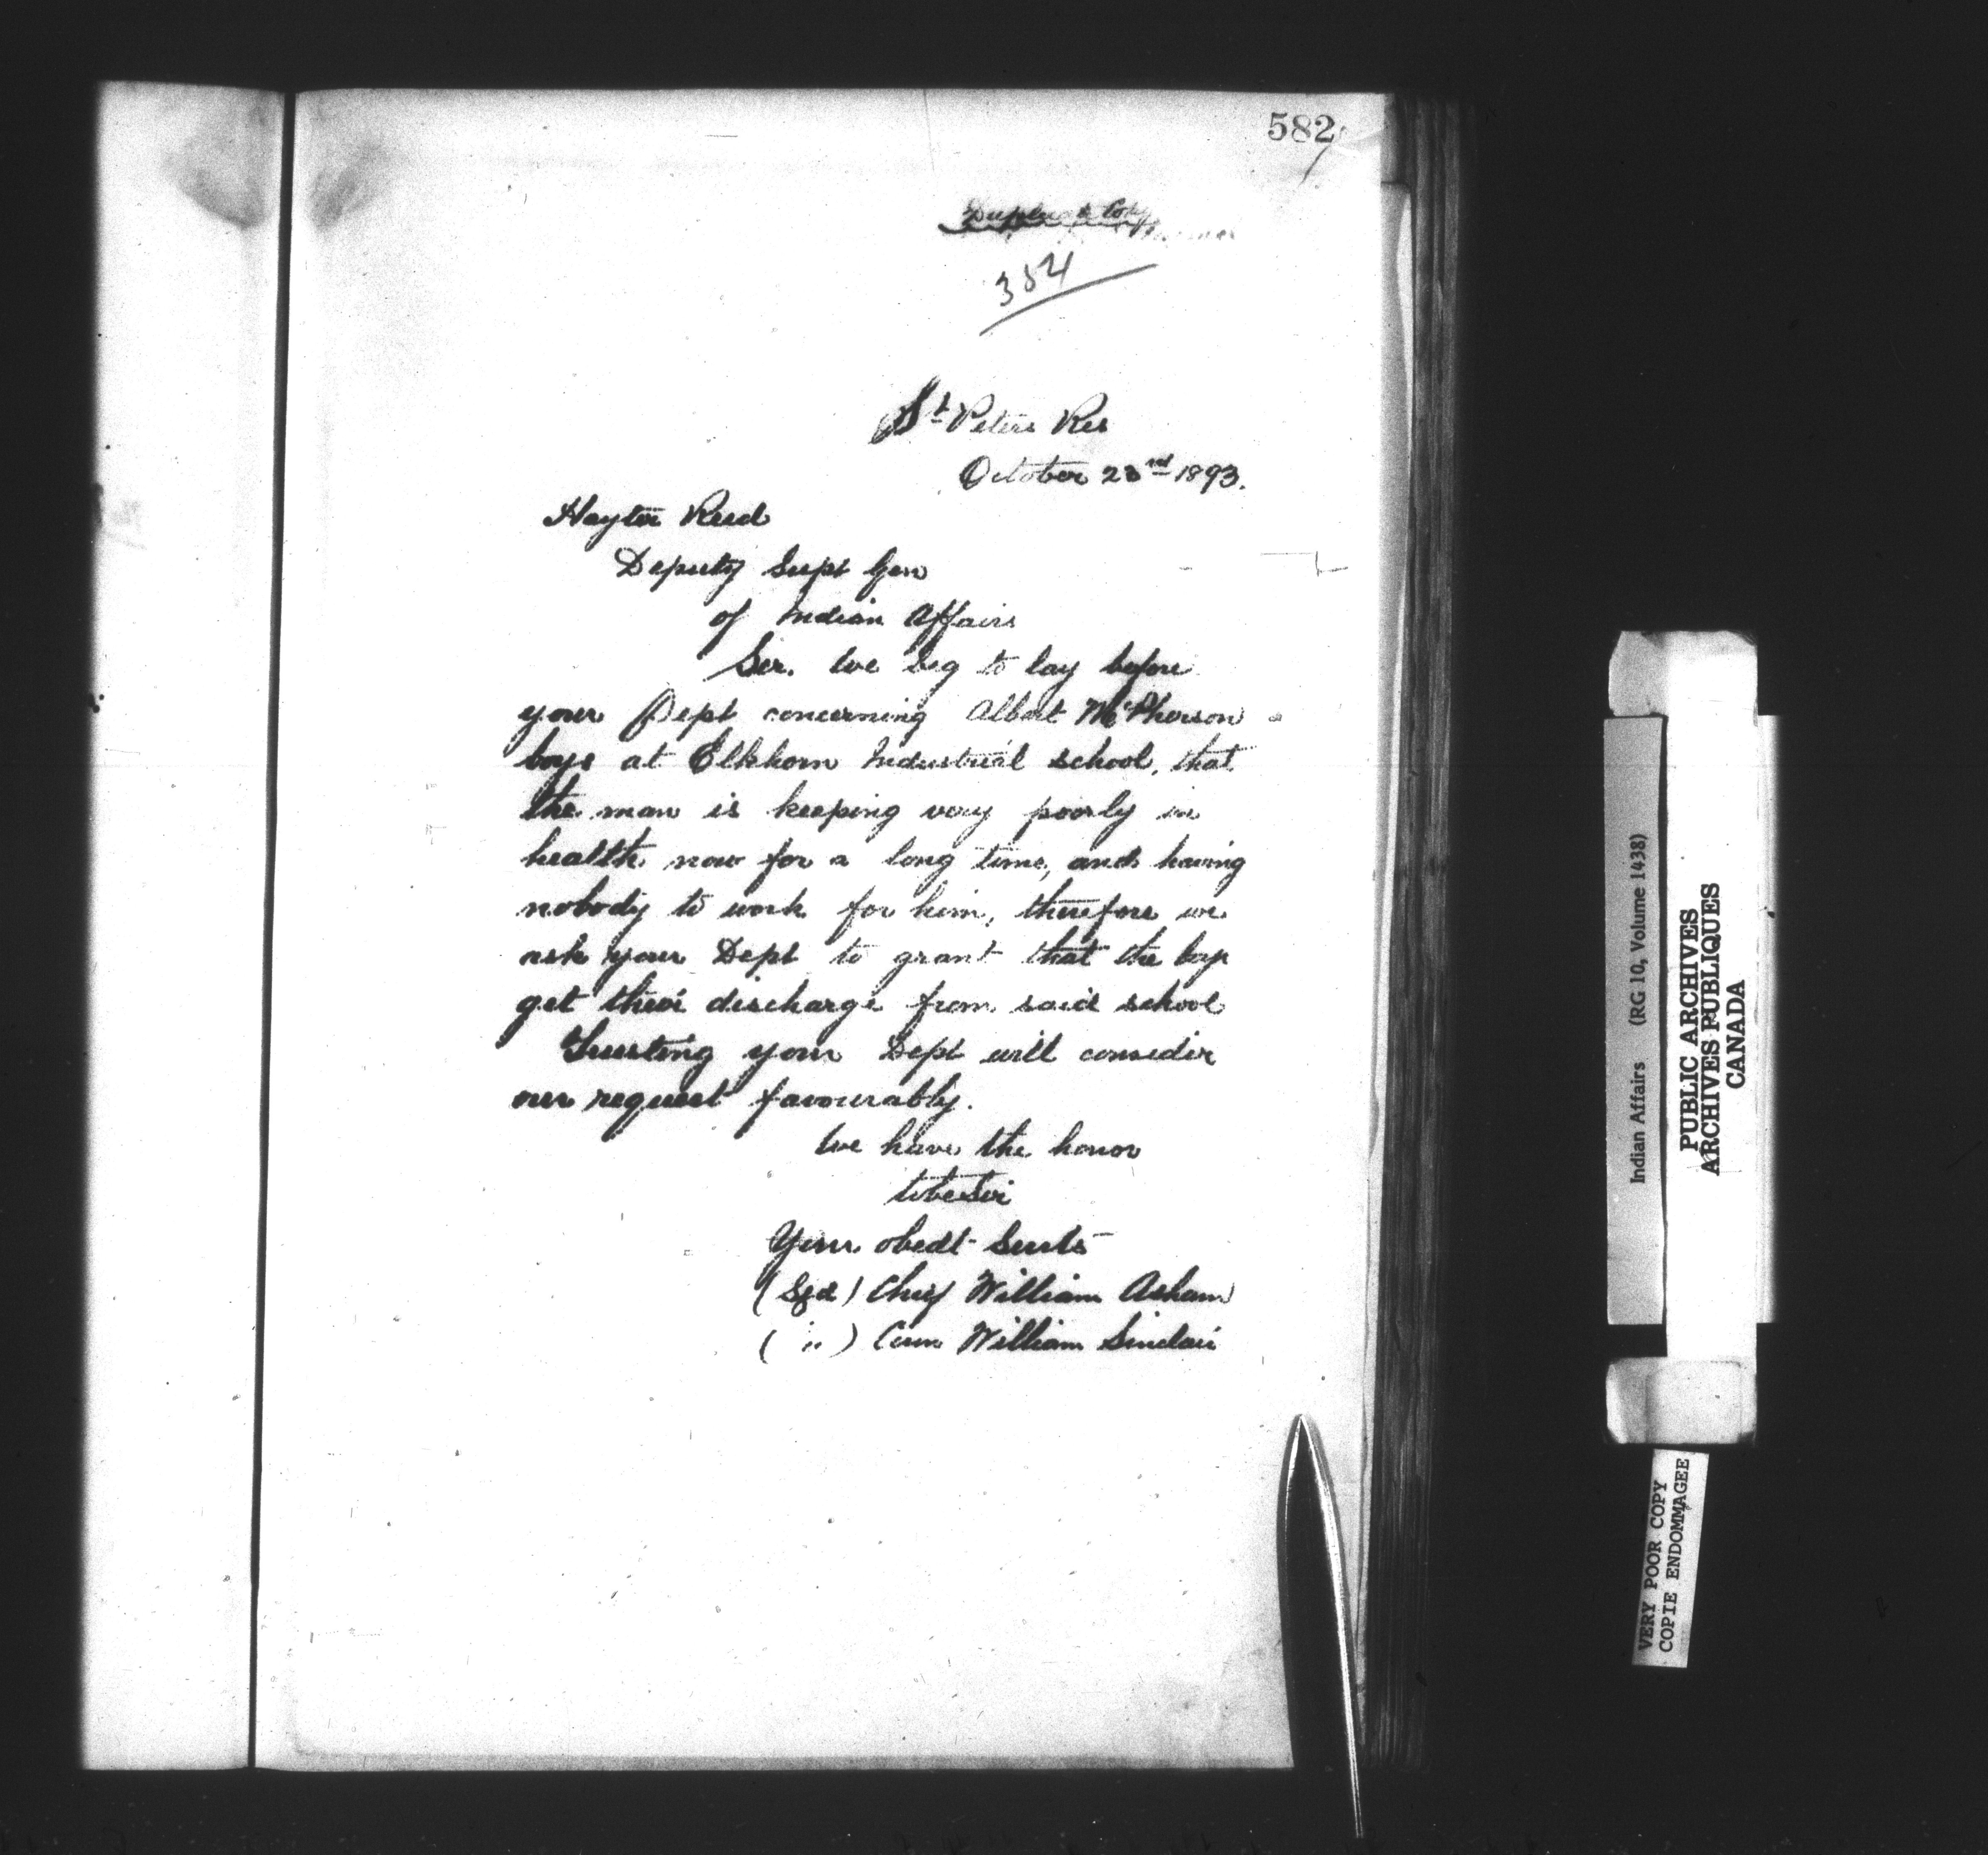 582
Duplicate Copy
384
St Peters Res
October 23rd 1893.
Hayter Reed
Deputy Supt Gen
of Indian Affairs
Sir. We beg to lay before
your Dept concerning Albert McPherson
boys at Elkhorn Industrial school, that
the man is keeping very poorly in
health now for a long time, and having
nobody to work for him, therefore we
ask your Dept to grant that the boys
get their discharge from said school
Trusting your Dept will consider
our request favourably.
We have the honor
to be Sir
Your obedt Servts
(Sgd) Chief William Asham
( " ) Coun William Sinclair
Indian Affairs (RG 10, Volume 1438)
PUBLIC ARCHIVES
ARCHIVES PUBLIQUES
CANADA
VERY POOR COPY
COPIE ENDOMMAGEE